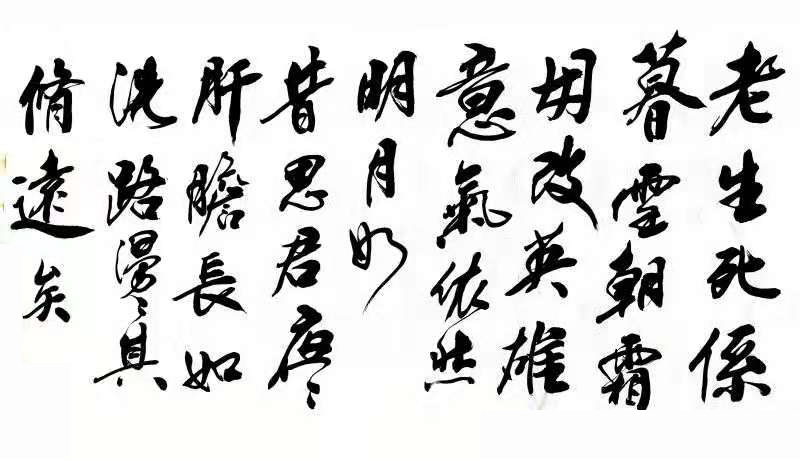 老生死係
暮雪朝霜
毋改英雄
意氣依然
明月如
昔思君廖々
肝膽長如
洗路漫々其
脩遠矣